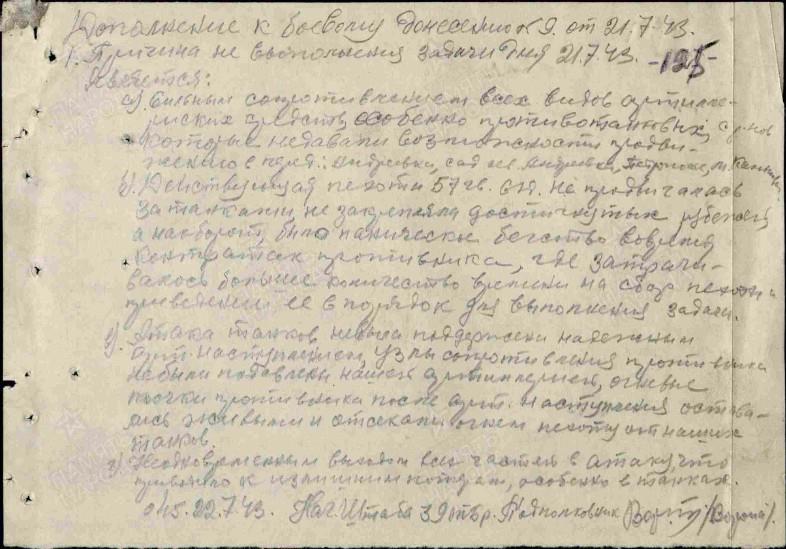 Дополнение к боевому донесению № 9. от 21.7.43.
1. Причина не выполнения задачи дня 21.7.43. -125-
Является:
а) Сильным сопротивлением всех видов артилле-
рийских средств, особенно противотанковых,
которые недавали возможности продви-
жению в перед: Андреевки, сад Андреевка,
б) Действующая пехота 57 гв. с.д. не продвигалась
за танками, не закрепляла достигнутых рубежей,
а наоборот, было паническое бегство вовремя
контратак противника, где затрачи-
валось большее количество времени на сбор пехоты и
приведении ее в порядок для выполнения задачи.
в). Атака танков небыла поддержена надежным
арт. наступлением, узлы сопротивления противника
небыли подавлены нашей артиллерией, огневые
точки противника после арт. наступления остава-
лись живыми и отсекали огнем пехоту от наших
танков.
г) Неодновременным выходом всех частей в атаку что
привело к излишним потерям, особенно в танках.
045. 22.7.43. Нач Штаба 39 тбр. Подполковник /Ворона/.